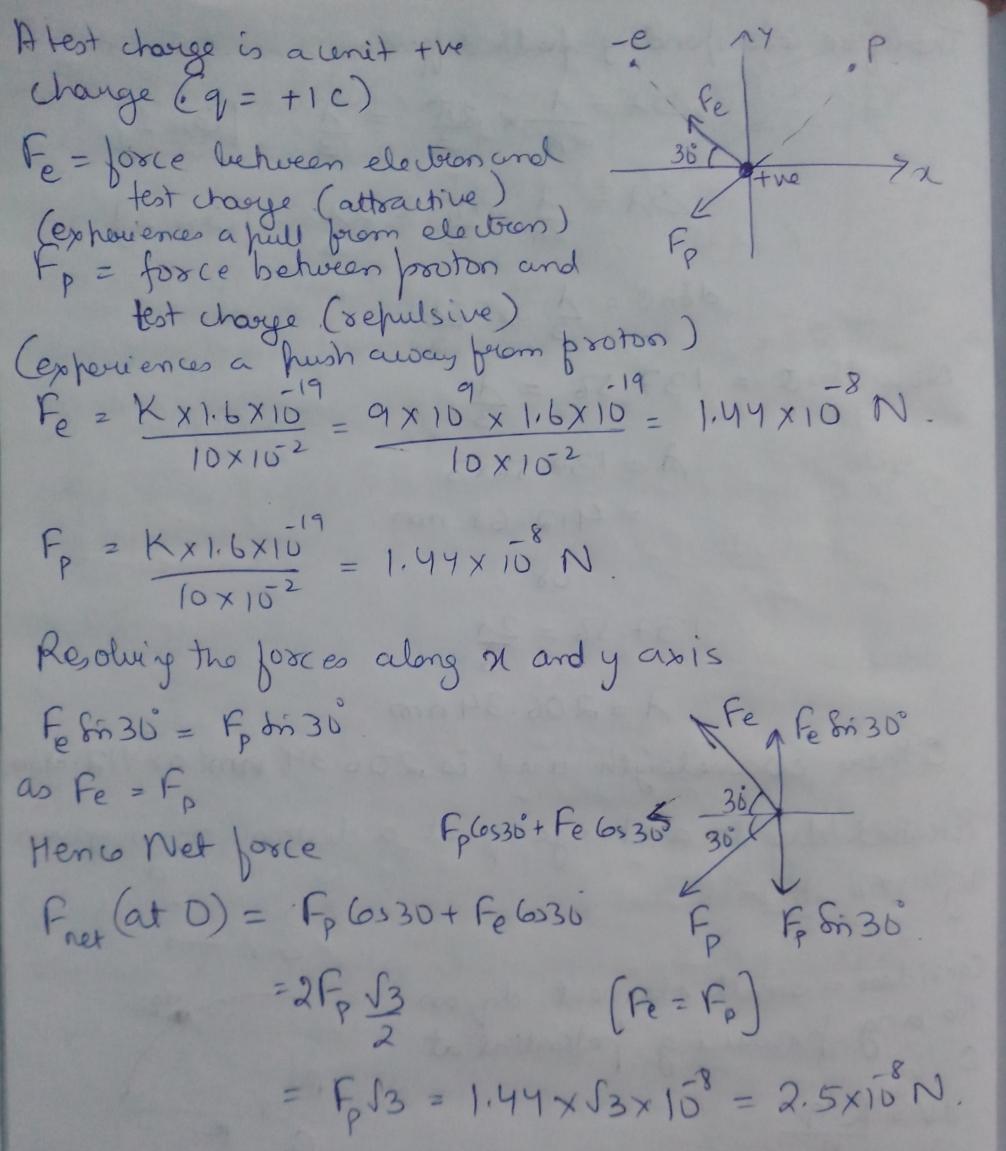 A test charge is a unit +ve
charge (q = +1C)
Fe = force between electron and
test charge (attractive)
(experiences a pull from electron)
Fp = force between proton and
test charge (repulsive)
(experiences a push away from proton)
-e
Y
P
Fe
30°
+ve
x
Fp
Fe = K×1.6×10^-19 / 10×10^-2 = 9×10^9×1.6×10^-19 / 10×10^-2 = 1.44×10^-8 N.
Fp = K×1.6×10^-19 / 10×10^-2 = 1.44×10^-8 N.
Resolving the forces along x and y axis
Fe Sin30° = Fp Sin30°
as Fe = Fp
Hence Net force
Fnet (at O) = Fp Cos30 + Fe Cos30
= 2Fp √3/2 [Fe = Fp]
= Fp√3 = 1.44×√3×10^-8 = 2.5×10^-8 N.
Fe
Fe Sin30°
30°
Fp Cos30° + Fe Cos30°
30°
Fp
Fp Sin30°